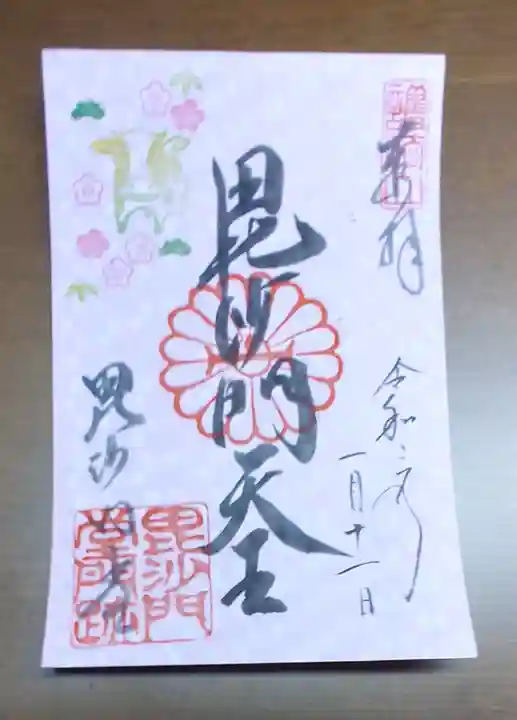 奉拝
毘沙門天王
令和三年
一月十一日
毘沙門堂
毘沙門
堂門跡